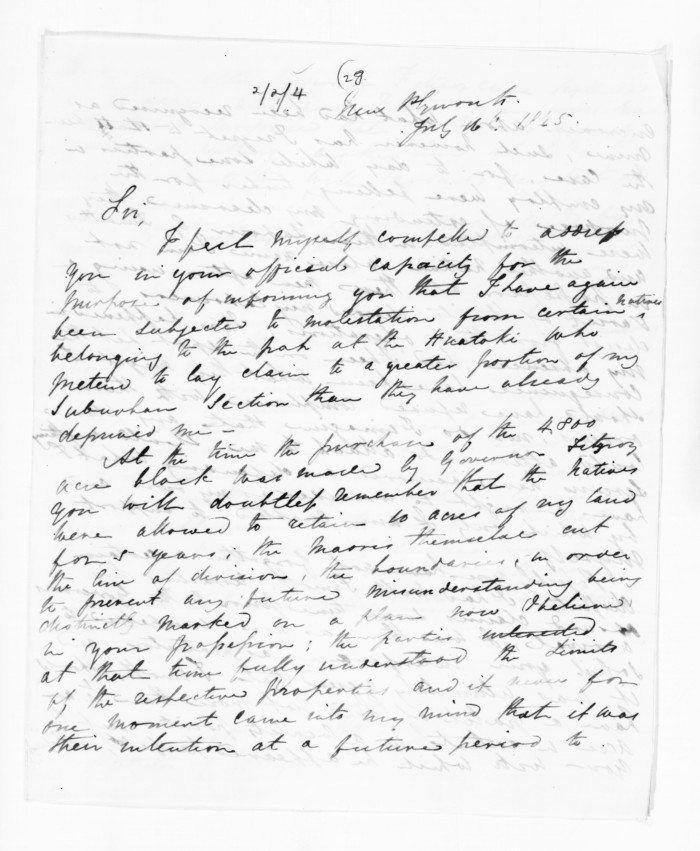 (29.
2/2/4
New Plymouth.
July 16th 1845.
Sir,
I feel myself compelled to address
you in your official capacity for the
purpose of informing you that I have again
been subjected to molestation from certain natives
belonging to the pah at the Huatoki who
pretend to lay claim to a greater portion of my
Suburban Section than they have already
deprived me —
At the time the purchase of the 4,800
acre block was made by Governor Fitzroy
you will doubtless remember that the Natives
were allowed to retain 10 acres of my land
for 5 years; the Maoris themselve cut
the line of division, the boundaries, in order
to prevent any future misunderstanding being
distinctly marked on a plan now I believe
in your possession; the parties interested
at that time fully understood the Limits
of the respective properties and it never for
one moment came into my mind that it was
their intention at a future period to